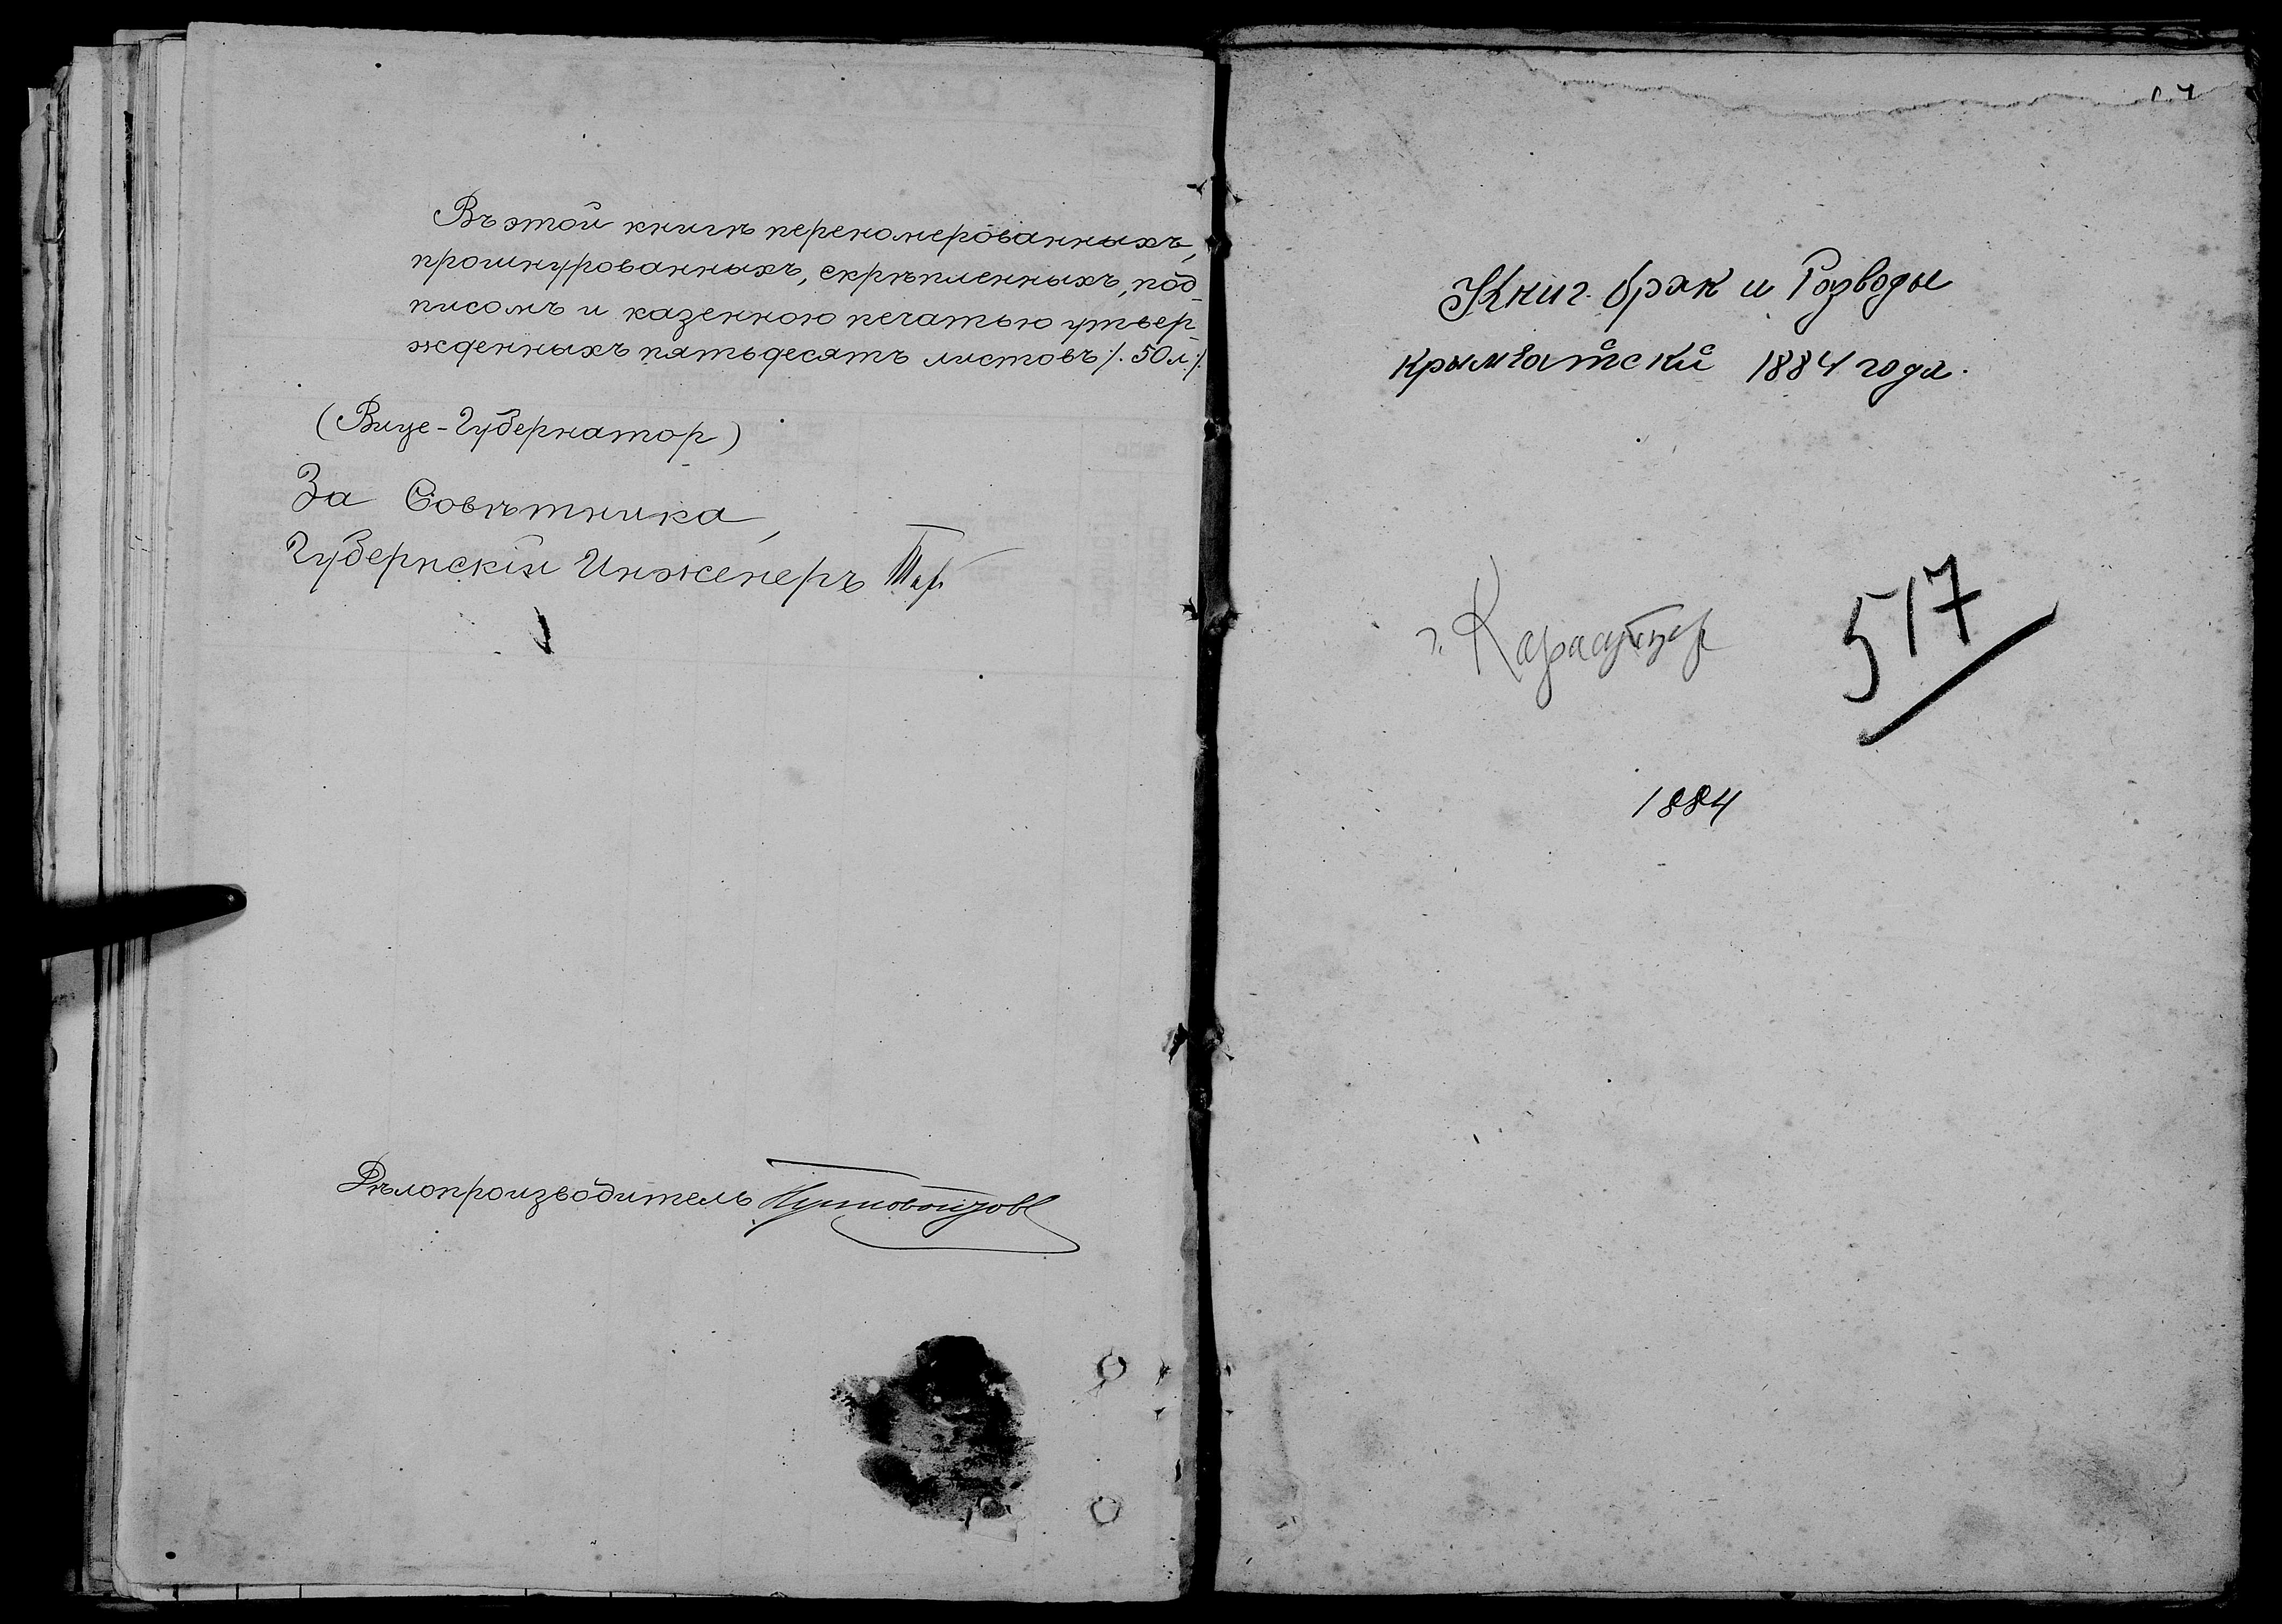 Въ этой книгѣ переномерованныхъ,
прошнурованныхъ, скрѣпленныхъ, под-
писомъ и казенною печатью утвер-
жденныхъ пятьдесятъ листовъ /. 50 л. /.
(Вице-Губернатор)
За Совѣтника,
Губернскій Инженеръ
Дѣлопроизводитель
Книг. брак и Розводы
крымчатской 1884 года.
517
1884